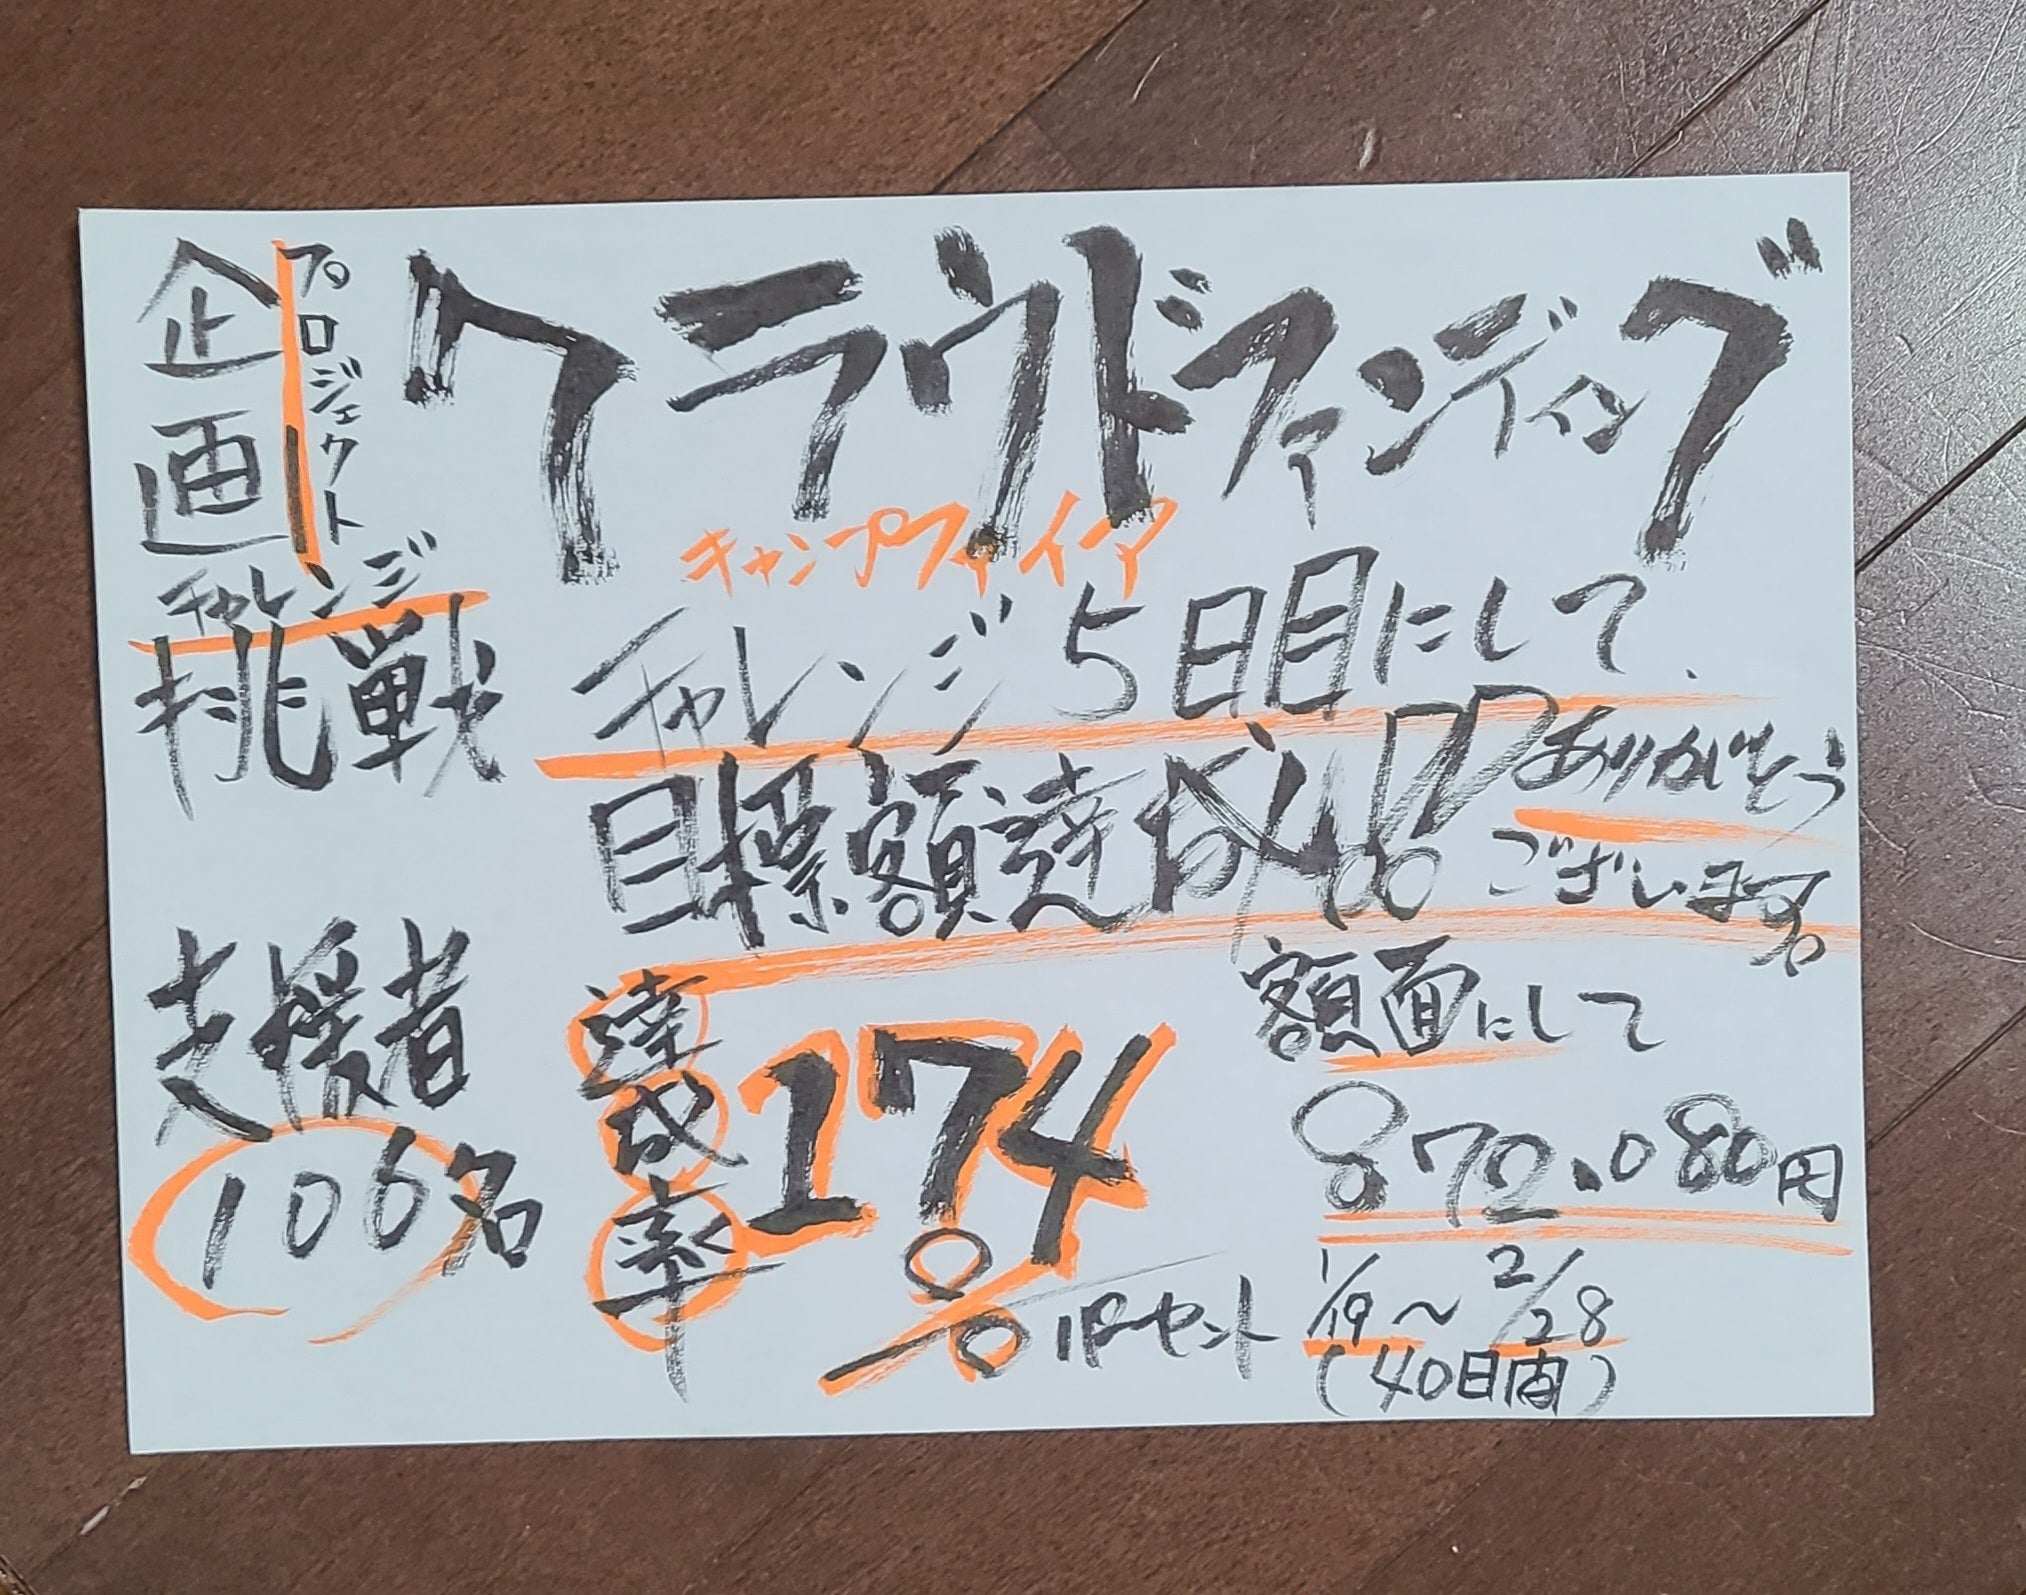 企画
プロジェクト
チャレンジ
挑戦
クラウドファンディング
キャンプファイアー
チャレンジ5日目にして、
目標額達成!!
ありがとう
ございます。
支援者
106名
達成率
174%
パーセント
額面にして
872.080円
1/19〜2/28
(40日間)